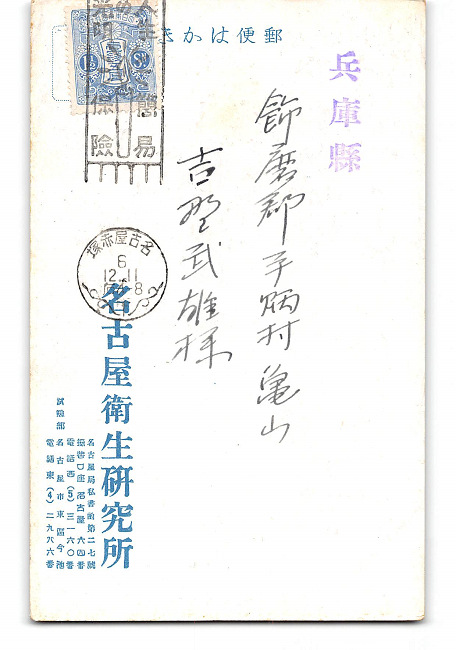 郵便はかき
兵庫縣
飾磨郡手柄村亀山
吉野武雄様
簡易保險
名古屋赤塚
6
12.11
名古屋衛生研究所
名古屋局私書函第二七號
振替口座名古屋六四番
電話西(5)三一六〇番
試験部
名古屋市東區今池
電話東(4)二九八六番